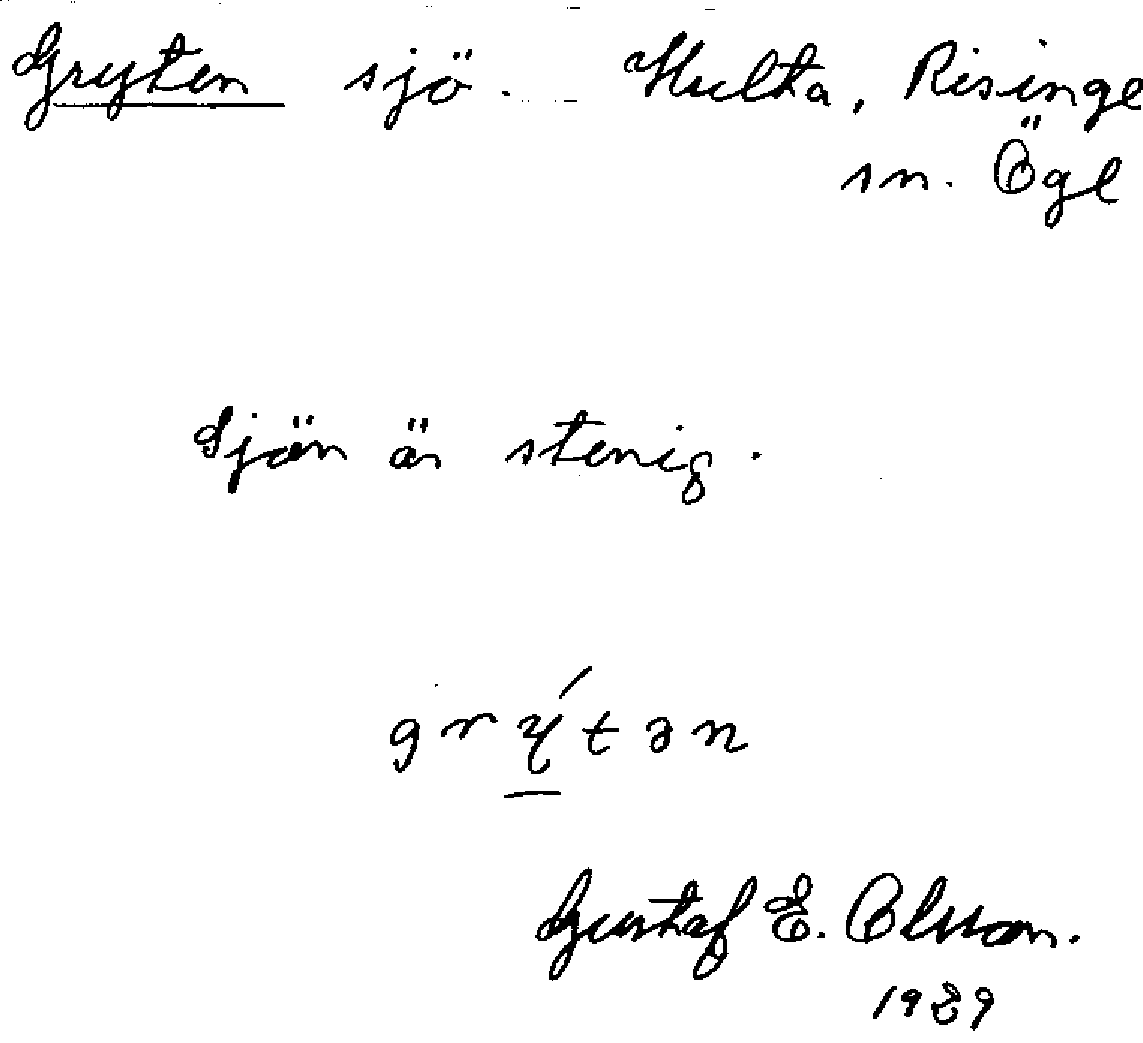 Gryten sjö. Hulta, Risinge
sn. Ögl
Sjön är stenig.
grýtən
Gustaf E. Olsson.
1939